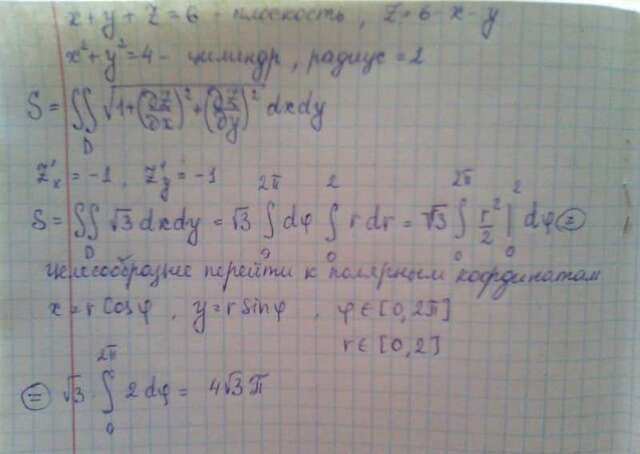 x + y + z = 6 - плоскость, z = 6 - x - y
x² + y² = 4 - цилиндр, радиус = 2
S = ∬_D √(1 + (∂z/∂x)² + (∂z/∂y)²) dxdy
z'_x = -1, z'_y = -1
S = ∬_D √3 dxdy = √3 ∫_0^{2π} dφ ∫_0^2 r dr = √3 ∫_0^{2π} r²/2 |_0^2 dφ ⊜
целесообразнее перейти к полярным координатам
x = r cos φ, y = r sin φ, φ ∈ [0, 2π]
r ∈ [0, 2]
⊜ √3 · ∫_0^{2π} 2 dφ = 4√3 π